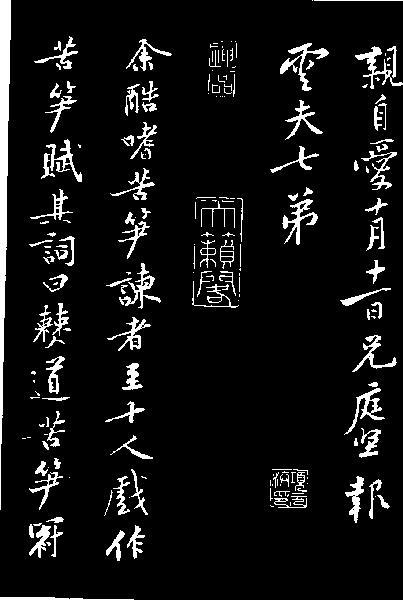 親自愛十月十一日兄庭堅報
雲夫七弟
天籟閣
項元汴印
余酷嗜苦笋諫者至十人戲作
苦笋賦其詞曰僰道苦笋冠